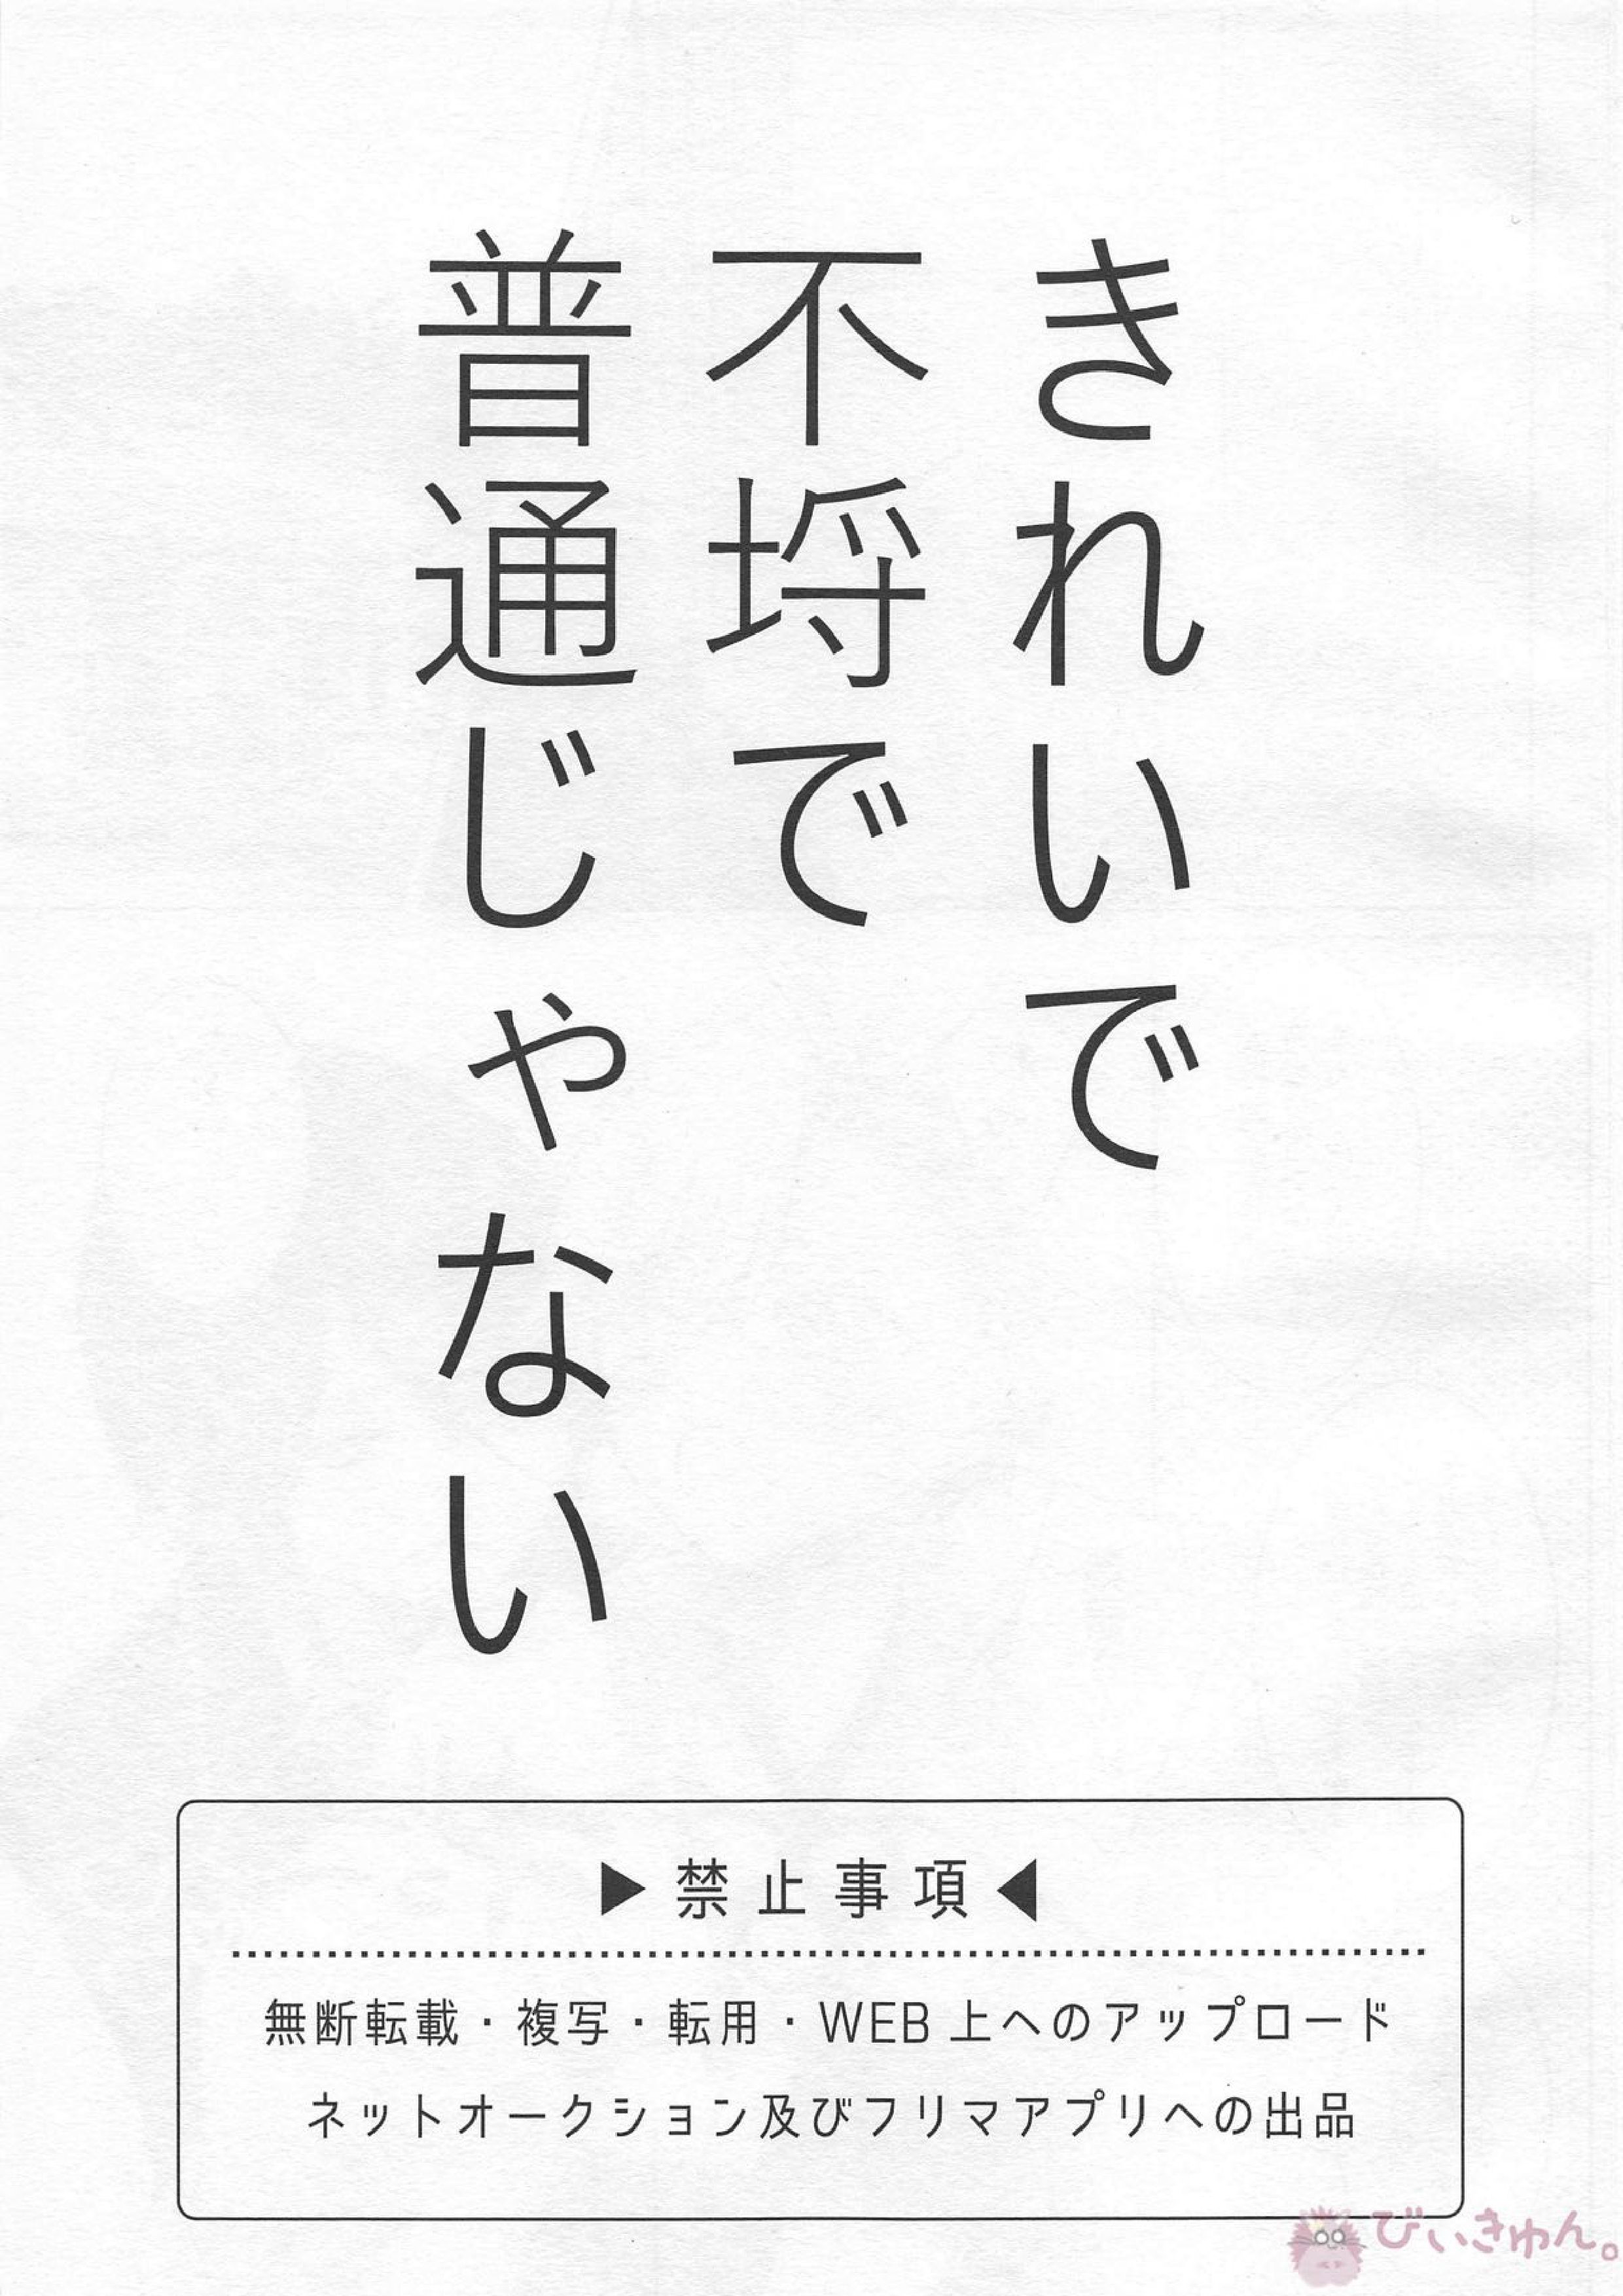 きれいで
不埒で
普通じゃない
▶禁止事項◀
無断転載・複写・転用・WEB上へのアップロード
ネットオークション及びフリマアプリへの出品
びぃきゅん。